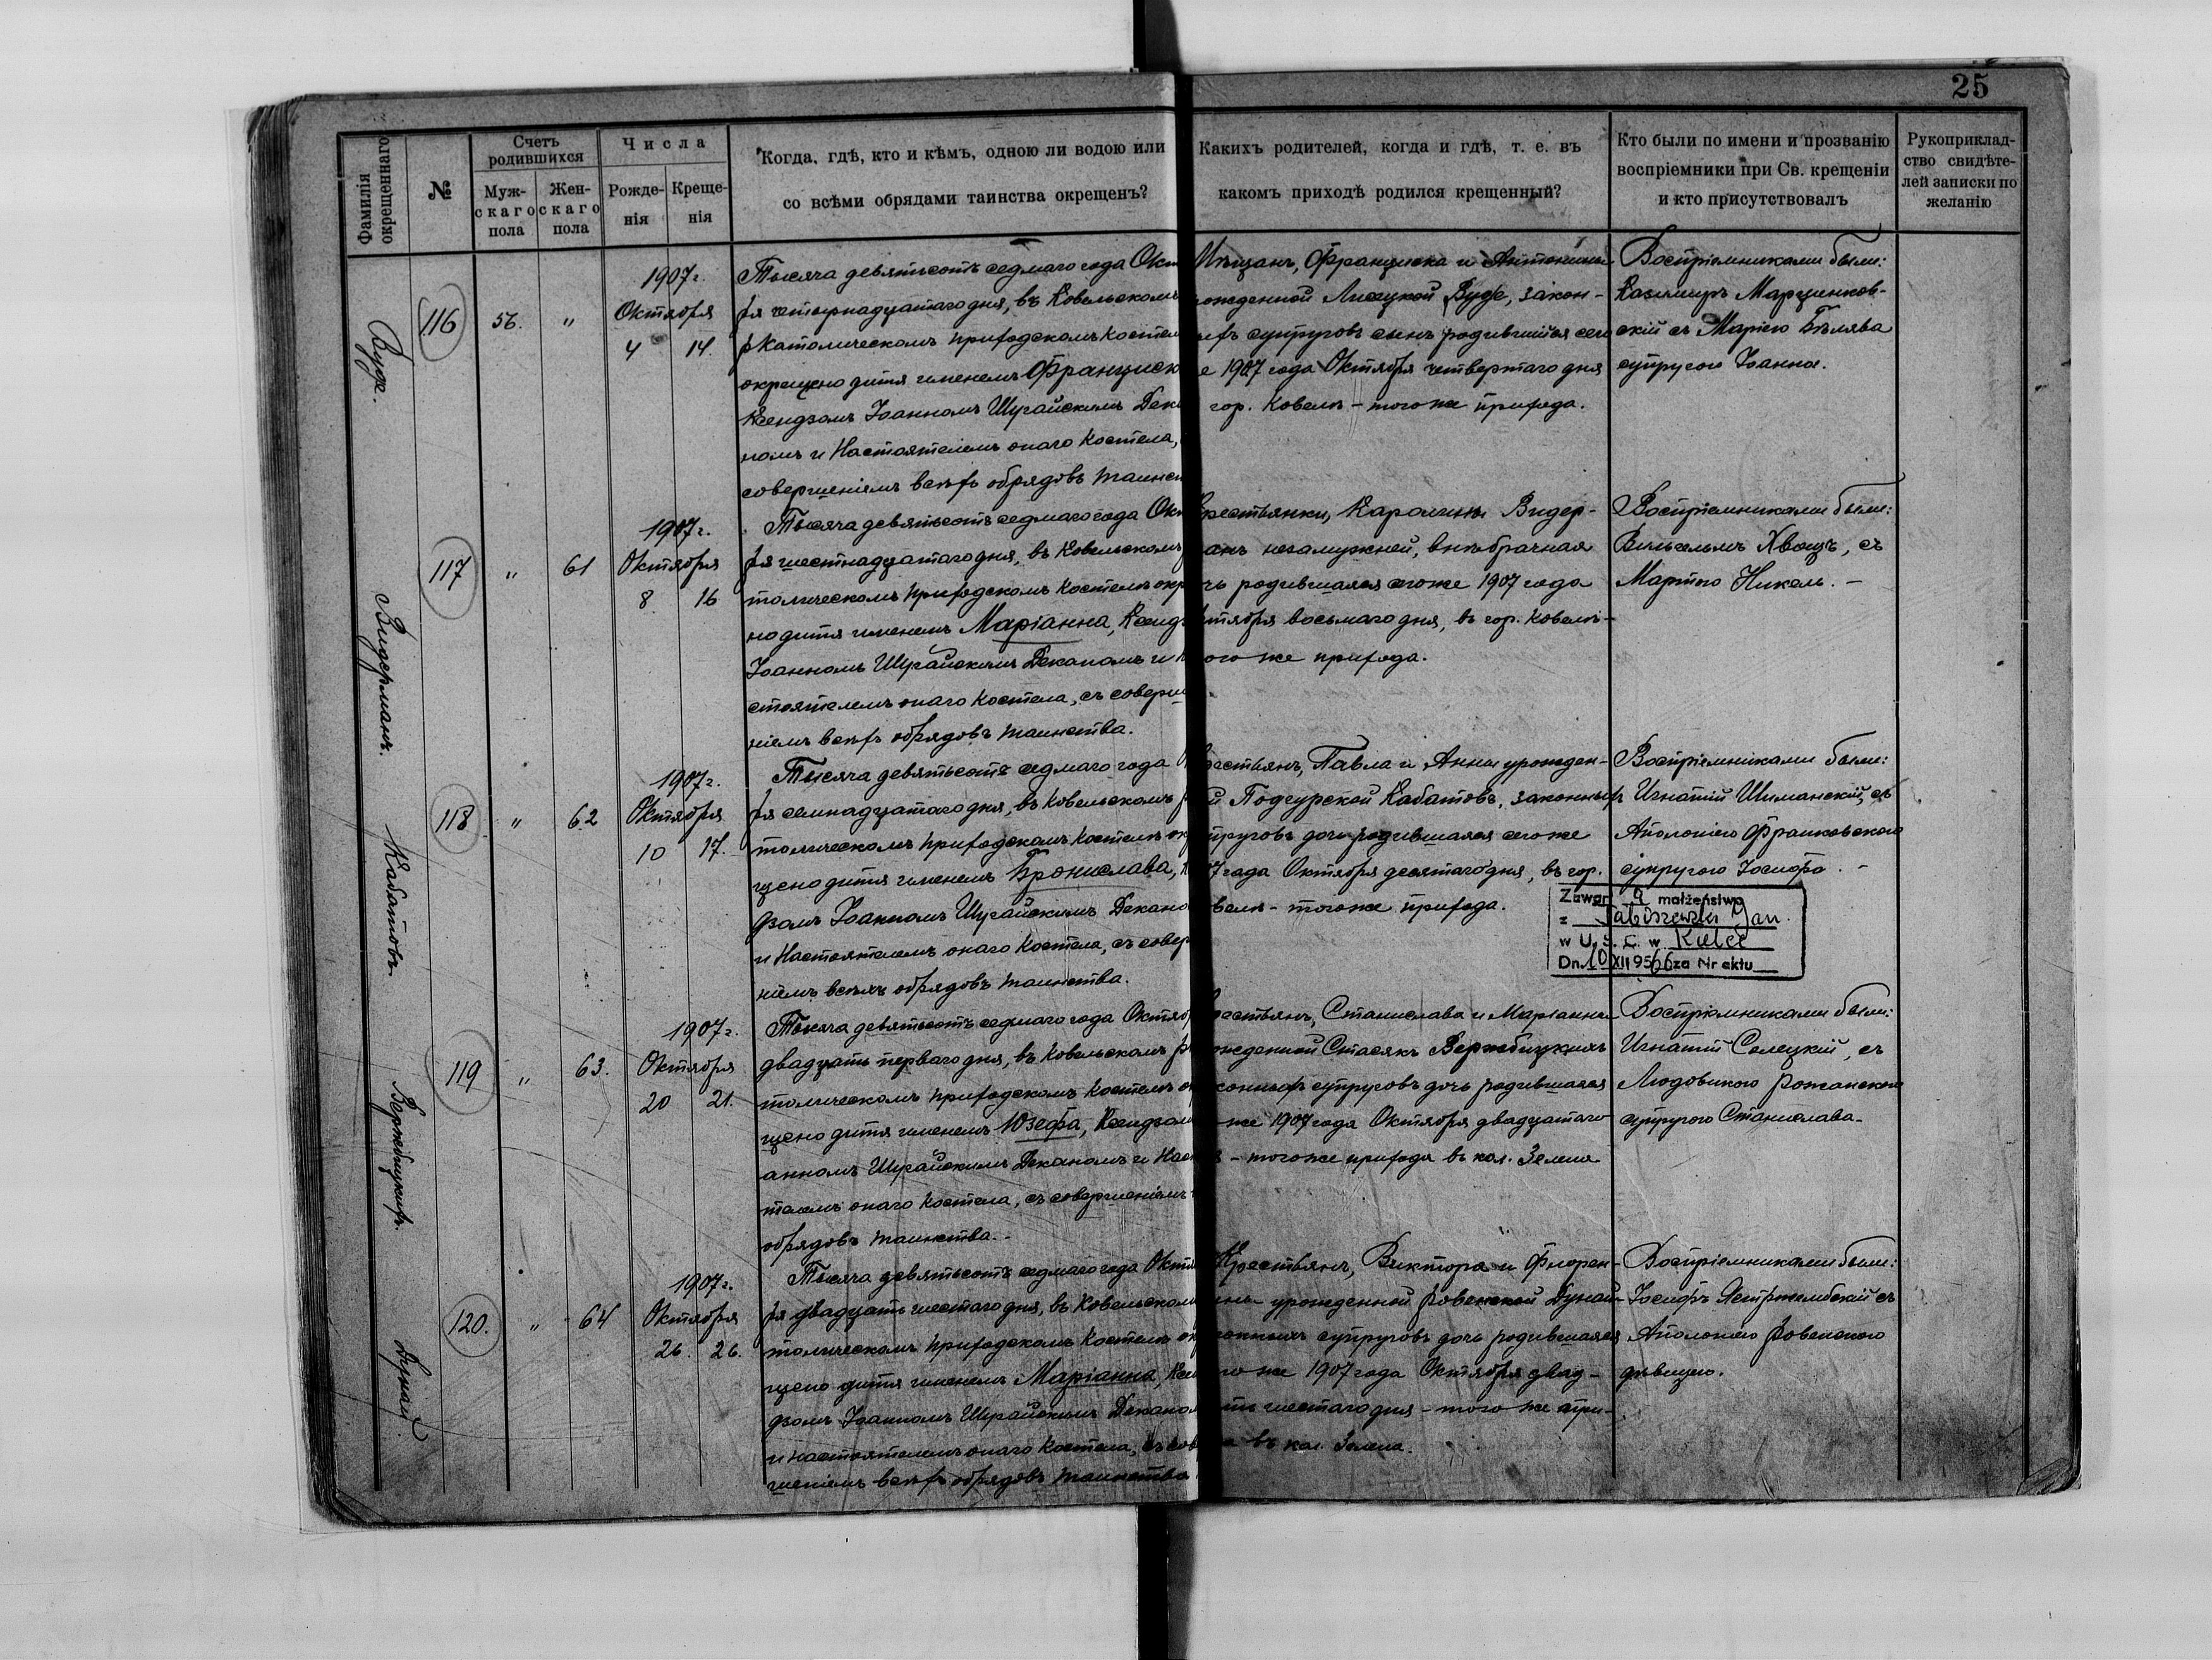 25
Фамилія окрещеннаго
№
Счетъ родившихся
Мужскаго пола
Женскаго пола
Числа
Рожденія
Крещенія
Когда, гдѣ, кто и кѣмъ, одною ли водою или
со всѣми обрядами таинства окрещенъ?
Какихъ родителей, когда и гдѣ, т. е. въ
какомъ приходѣ родился крещенный?
Кто были по имени и прозванію
воспріемники при Св. крещеніи
и кто присутствовалъ
Рукоприклад-
ство свидѣте-
лей записки по
желанію
116
56.
"
1907 г.
Октября
4 14.
Тысяча девятьсотъ седмаго года Окт
ря четырнадцатаго дня, въ Ковельскомъ
р Католическомъ приходскомъ костел
окрещено дитя именемъ Францискъ
Ксендзомъ Іоанномъ Шугайскимъ Дека
номъ и Настоятелемъ онаго костела,
совершеніемъ всѣхъ обрядовъ таинст
Мѣщанъ, Франциска и Антонины
рожденной Лисецкой Вуде, закон-
ыхъ супруговъ сынъ родившійся сего
е 1907 года Октября четвертаго дня
гор. Ковелѣ - того же прихода.
Воспріемниками были:
Казимиръ Марцинков-
скій съ Маріею Бѣлява
супругою Іоанна.
117
Видерманъ.
"
61
1907 г.
Октября
8 16
Тысяча девятьсотъ седмаго года Окт
ря шестнадцатаго дня, въ Ковельскомъ
толическомъ приходскомъ костелѣ окр
но дитя именемъ Маріанна, Ксендз
Іоанномъ Шугайскимъ Деканомъ и Н
стоятелемъ онаго костела, съ соверш
ніемъ всѣхъ обрядовъ таинства.
Крестьянки, Каролины Видер-
манъ незамужней, внѣбрачная
чь родившаяся сего же 1907 года
ктября восьмаго дня, въ гор. Ковелѣ-
того же прихода.
Воспріемниками были:
Вильгельмъ Хващъ, съ
Мартою Никель. -
118
Кабатовъ.
"
62
1907 г.
Октября
10 17.
Тысяча девятьсотъ седмаго года
ря семнадцатаго дня, въ Ковельскомъ р
толическомъ приходскомъ костелѣ окр
щено дитя именемъ Бронислава, К
дзомъ Іоанномъ Шугайскимъ Декано
и Настоятелемъ онаго костела, съ совер
ніемъ всѣхъ обрядовъ таинства.
рестьянъ, Павла и Анны урожден-
й Подгурской Кабатовъ, законныхъ
супруговъ дочь родившаяся сего же
07 года Октября десятаго дня, въ гор.
велѣ - того же прихода.
Воспріемниками были:
Игнатій Шиманскій, съ
Аполоніею Франковскою
супругою Іосифа. -
Zawarł a małżeństwo
z Jan.
w U.S.C. w Kielce
Dn. 10 XII 1956 za Nr aktu
119
Вержбицкихъ.
"
63.
1907 г.
Октября
20 21.
Тысяча девятьсотъ седмаго года Октяб
двадцать перваго дня, въ Ковельскомъ р
толическомъ приходскомъ костелѣ ок
щено дитя именемъ Юзефа, Ксендзом
анномъ Шугайскимъ Деканомъ и Наст
телемъ онаго костела, съ совершеніемъ
обрядовъ таинства.-
рестьянъ, Станислава и Маріанны
жденной Стасякъ Вержбицкихъ
конныхъ супруговъ дочь родившаяся
же 1907 года Октября двадцатаго
- того же прихода въ кол. Зелена
Воспріемниками были:
Игнатій Солецкій, съ
Людовикою Рожанскою
супругою Станислава-
120.
Дунай.
"
64
1907 г.
Октября
26. 26.
Тысяча девятьсотъ седмаго года Октя
ря двадцать шестаго дня, въ Ковельском
толическомъ приходскомъ костелѣ ок
щено дитя именемъ Маріанна, Ксен
дзомъ Іоанномъ Шугайскимъ Декано
и настоятелемъ онаго костела, съ сов
шеніемъ всѣхъ обрядовъ таинства
Крестьянъ, Виктора и Флорен-
ны урожденной Ровенской Дунай-
конныхъ супруговъ дочь родившаяся
го же 1907 года Октября двад-
ть шестаго дня - того же при-
а въ кол. Зелена.
Воспріемниками были:
Іосифъ Ястржембскій съ
Аполоніею Ровенскою
дѣвицею.